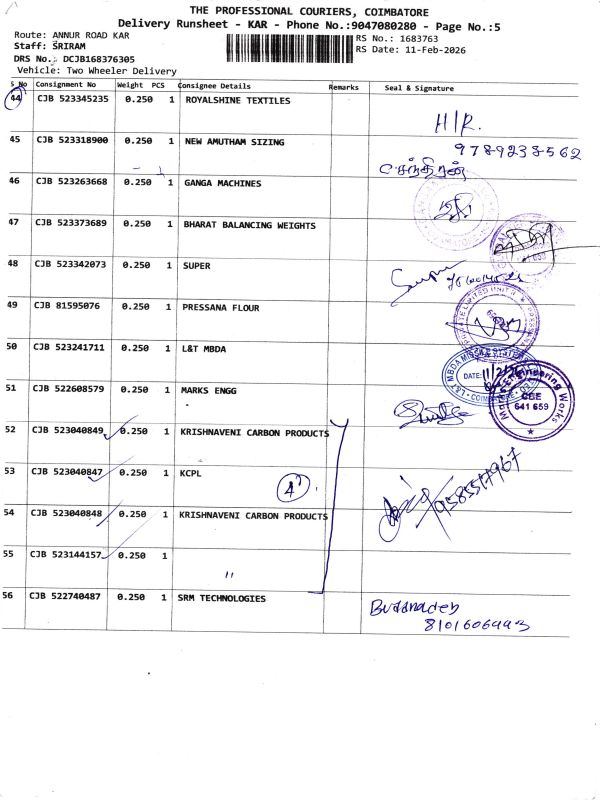 THE PROFESSIONAL COURIERS, COIMBATORE
Delivery Runsheet - KAR - Phone No.:9047080280 - Page No.:5
Route: ANNUR ROAD KAR
RS No.: 1683763
Staff: SRIRAM
RS Date: 11-Feb-2026
DRS No.: DCJB168376305
Vehicle: Two Wheeler Delivery
S No Consignment No Weight PCS Consignee Details Remarks Seal & Signature
44 CJB 523345235 0.250 1 ROYALSHINE TEXTILES
H/R.
45 CJB 523318900 0.250 1 NEW AMUTHAM SIZING 9789238562
46 CJB 523263668 0.250 1 GANGA MACHINES
47 CJB 523373689 0.250 1 BHARAT BALANCING WEIGHTS
48 CJB 523342073 0.250 1 SUPER
49 CJB 81595076 0.250 1 PRESSANA FLOUR
50 CJB 523241711 0.250 1 L&T MBDA
DATE:
51 CJB 522608579 0.250 1 MARKS ENGG
Engineering Works
CBE
641 659
52 CJB 523040849 0.250 1 KRISHNAVENI CARBON PRODUCTS
53 CJB 523040847 0.250 1 KCPL
4
9585517967
54 CJB 523040848 0.250 1 KRISHNAVENI CARBON PRODUCTS
55 CJB 523144157 0.250 1
"
56 CJB 522740487 0.250 1 SRM TECHNOLOGIES
Buddhadeb
8101606993